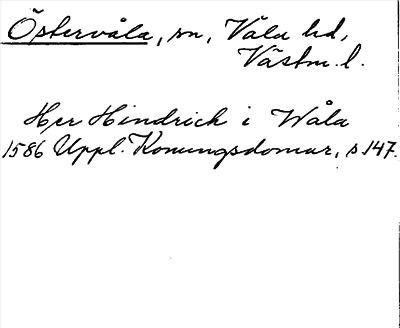 Östervåla, sn, Våla hd,
Västm. l.
Herr Hindrich i Wåla
1586 Uppl. Konungsdomar, s 147.